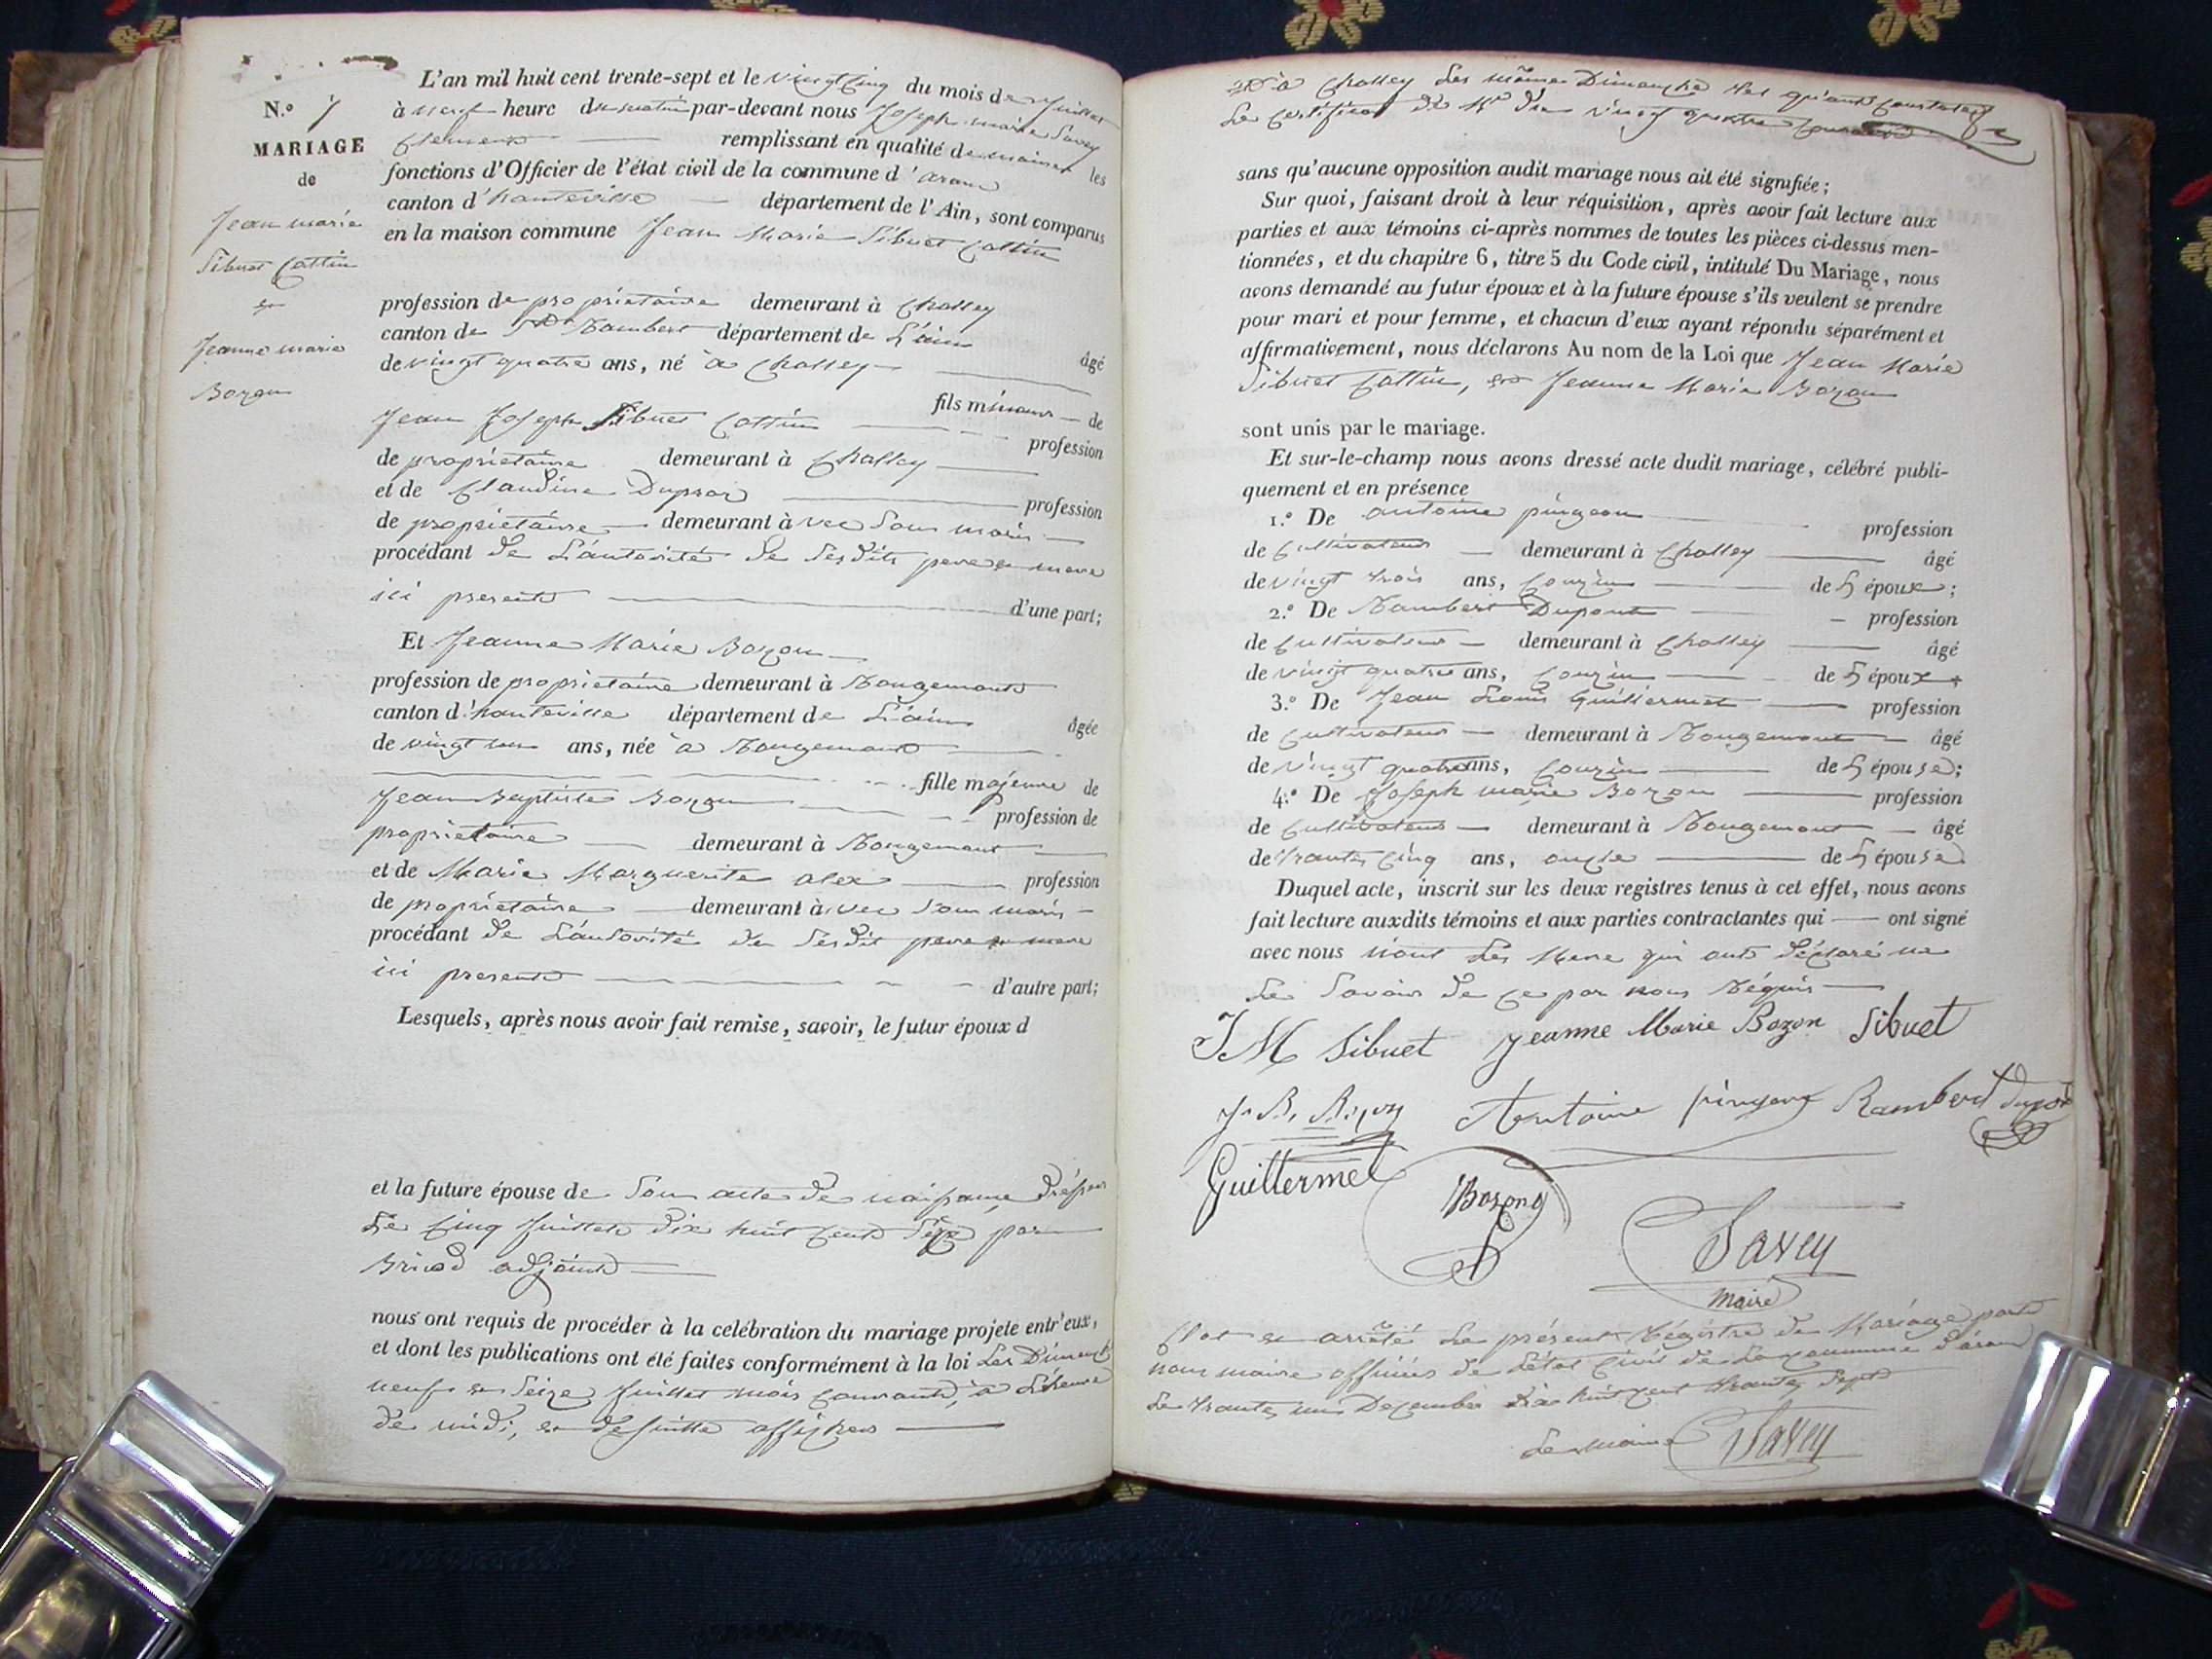 N.° 7
MARIAGE
de
Jean marie
Sibuet Cottin
et
Jeanne marie
Bozon
L'an mil huit cent trente-sept et le vingt Cinq du mois de Juillet
à neuf heure du matin par-devant nous Joseph marie Savey
Clement remplissant en qualité de maire les
fonctions d'Officier de l'état civil de la commune d'aranc
canton d'hauteville département de l'Ain, sont comparus
en la maison commune Jean Marie Sibuet Cottin
profession de proprietaire demeurant à Challey
canton de St Rambert département de L'ain
âgé
de vingt quatre ans, né à Challey
fils mineur de
Jean Joseph Sibuet Cottin
profession
de proprietaire demeurant à Challey
et de Claudine
profession
de proprietaire demeurant àvec Son maris
procédant de L'autorité de Sesdits pere et mere
ici presents d'une part;
Et Jeanne Marie Bozon
profession de proprietaire demeurant à Rougemont
canton d'hauteville département de L'ain
âgée
de vingt un ans, née à Rougemont
fille majeure de
Jean Baptiste Bozon
profession de
proprietaire demeurant à Rougemont
et de Marie Marguerite alex profession
de proprietaire demeurant àvec Son maris
procédant de L'autorité de Sesdit pere et mere
ici presents d'autre part;
Lesquels, après nous avoir fait remise, savoir, le futur époux d
et la future épouse de Son acte de naissance,
Le Cinq Juillet dix huit Cent Seize par
adjoint
nous ont requis de procéder à la celébration du mariage projete entr'eux,
et dont les publications ont été faites conformément à la loi Les
neuf et Seize Juillet mois Courant, à L'heure
de midi, et de suitte affichees
à Challey Les même Dimanche
Le Certificat de Mr du vingt quatre Courant
sans qu'aucune opposition audit mariage nous ait été signifiée;
Sur quoi, faisant droit à leur réquisition, après avoir fait lecture aux
parties et aux témoins ci-après nommes de toutes les pièces ci-dessus men-
tionnées, et du chapitre 6, titre 5 du Code civil, intitulé Du Mariage, nous
avons demandé au futur époux et à la future épouse s'ils veulent se prendre
pour mari et pour femme, et chacun d'eux ayant répondu séparément et
affirmativement, nous déclarons Au nom de la Loi que Jean Marie
Sibuet Cottin, et Jeanne Marie Bozon
sont unis par le mariage.
Et sur-le-champ nous avons dressé acte dudit mariage, célébré publi-
quement et en présence
1.° De antoine pingeon
profession
de Cultivateur demeurant à Challey âgé
de vingt trois ans, Couzin de L époux;
2.° De Rambert Dupont profession
de Cultivateur demeurant à Challey âgé
de vingt quatre ans, Couzin de L époux
3.° De Jean Louis Guillermet profession
de Cultivateur demeurant à Rougemont âgé
de vingt quatre ans, Couzin de L épouse;
4.° De Joseph marie Bozon profession
de Cultivateur demeurant à Rougemont âgé
de trante Cinq ans, oncle de L épouse
Duquel acte, inscrit sur les deux registres tenus à cet effet, nous avons
fait lecture auxdits témoins et aux parties contractantes qui ont signé
avec nous Les Mere qui ont déclaré ne
Le Savoir de Ce par nous Réquis
J M Sibuet Jeanne Marie Bozon Sibuet
J. B. Bozon Antoine pingeon Rambert
Guillermet Bozon Savey
Maire
Clot et arrêté Le présent Régistre de Mariage par
nous maire officier de L'état Civil de La Commune d'aranc
Le trante un Decembre dix huit Cent trante Sept
Le maire Savey